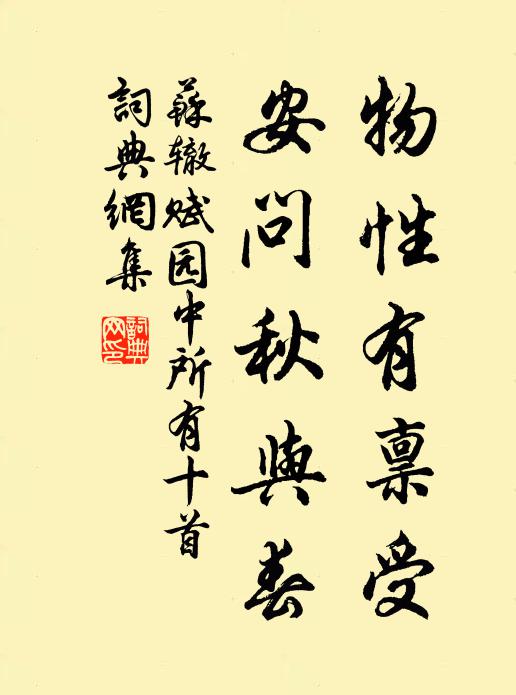 物性有禀受
安问秋與春
蘇辙赋园中所有十首
詞典網集
詞典网印